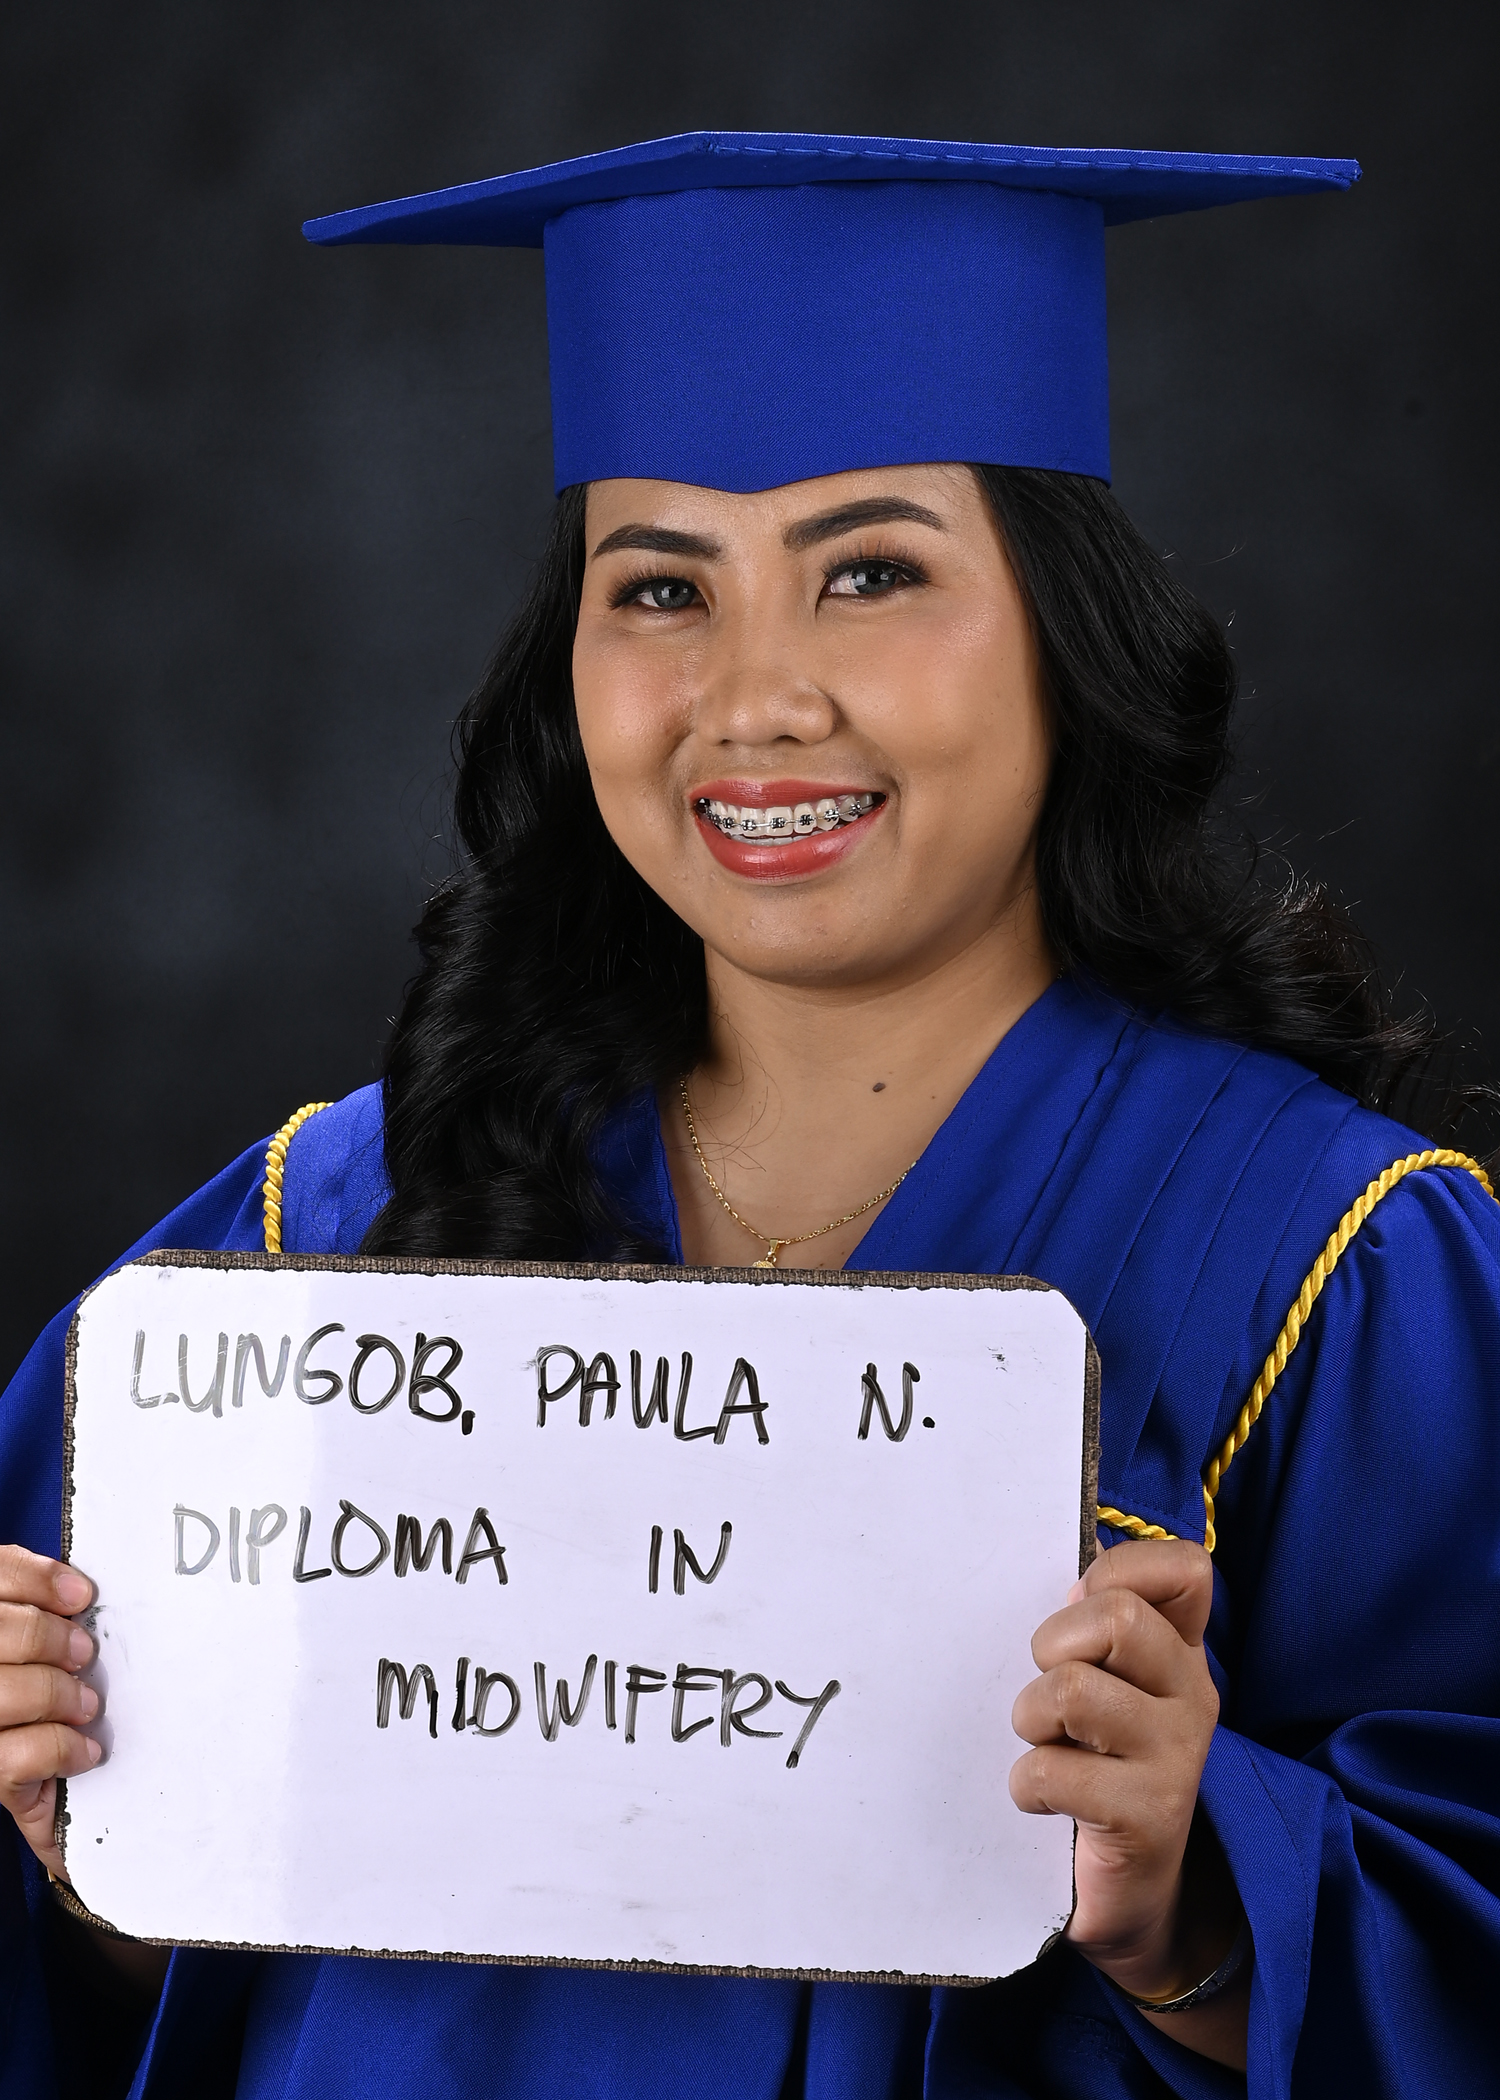 LUNGOB, PAULA N.
DIPLOMA IN
MIDWIFERY